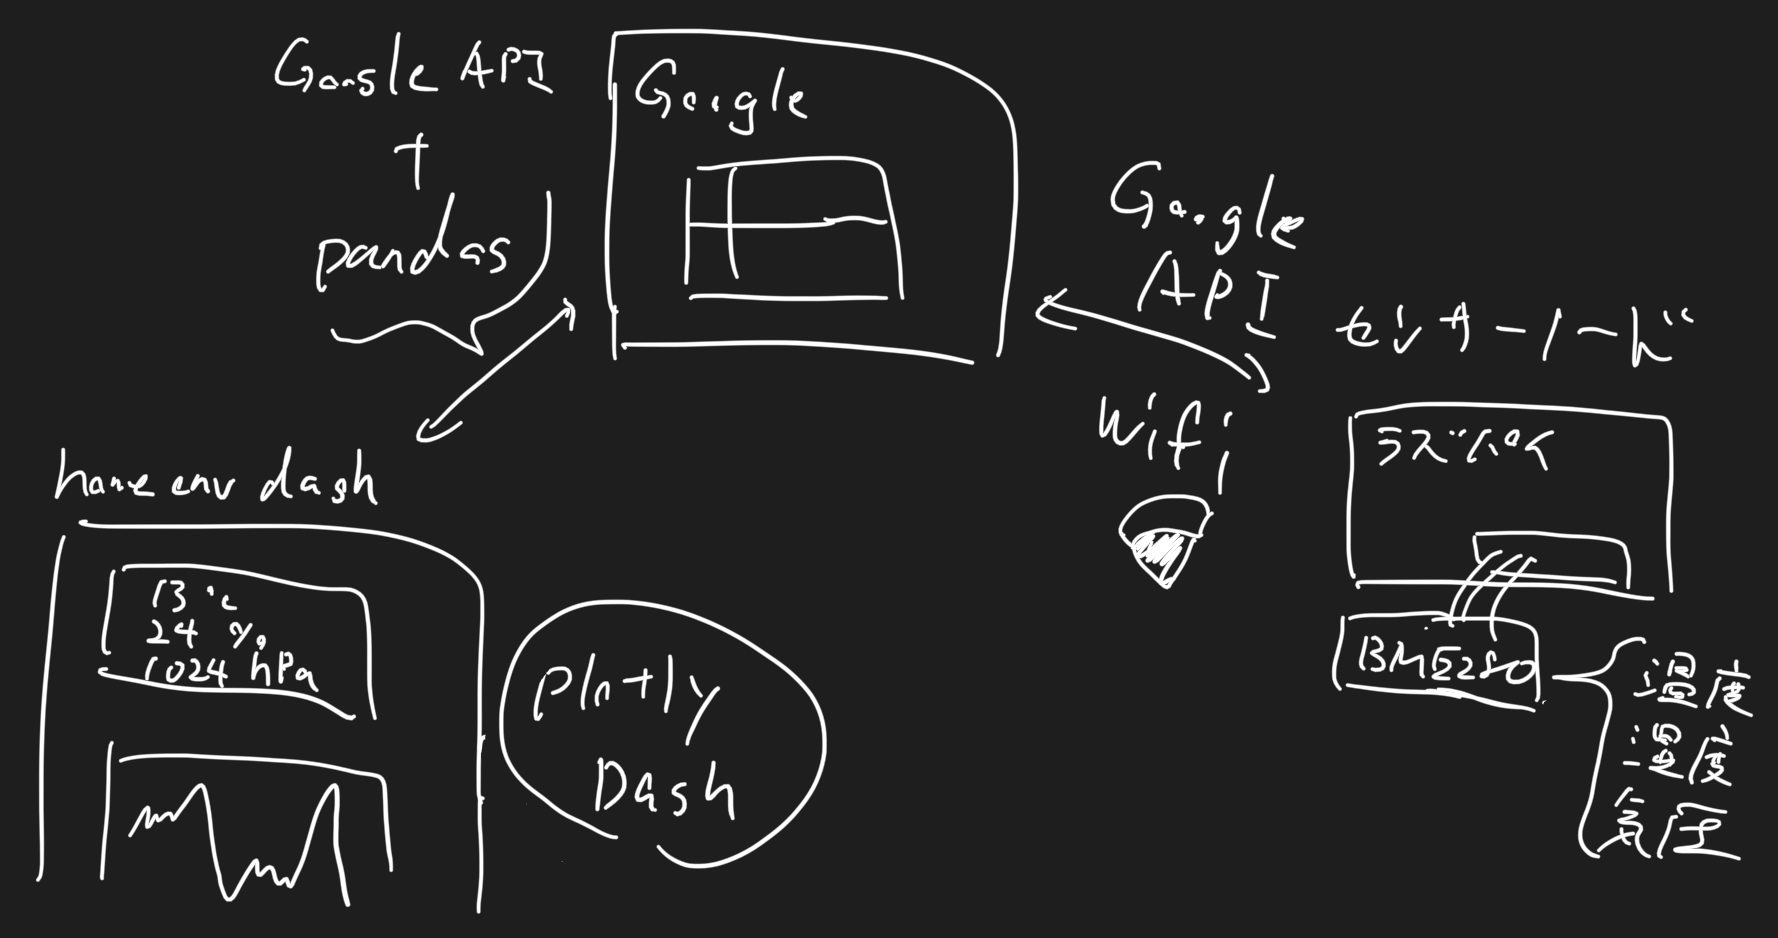 Google API
+
pandas
Google
Google
API
Wifi
センサーノード
ラズパイ
BME280
温度
湿度
気圧
home env dash
13℃
24 %
1024 hPa
Plotly
Dash